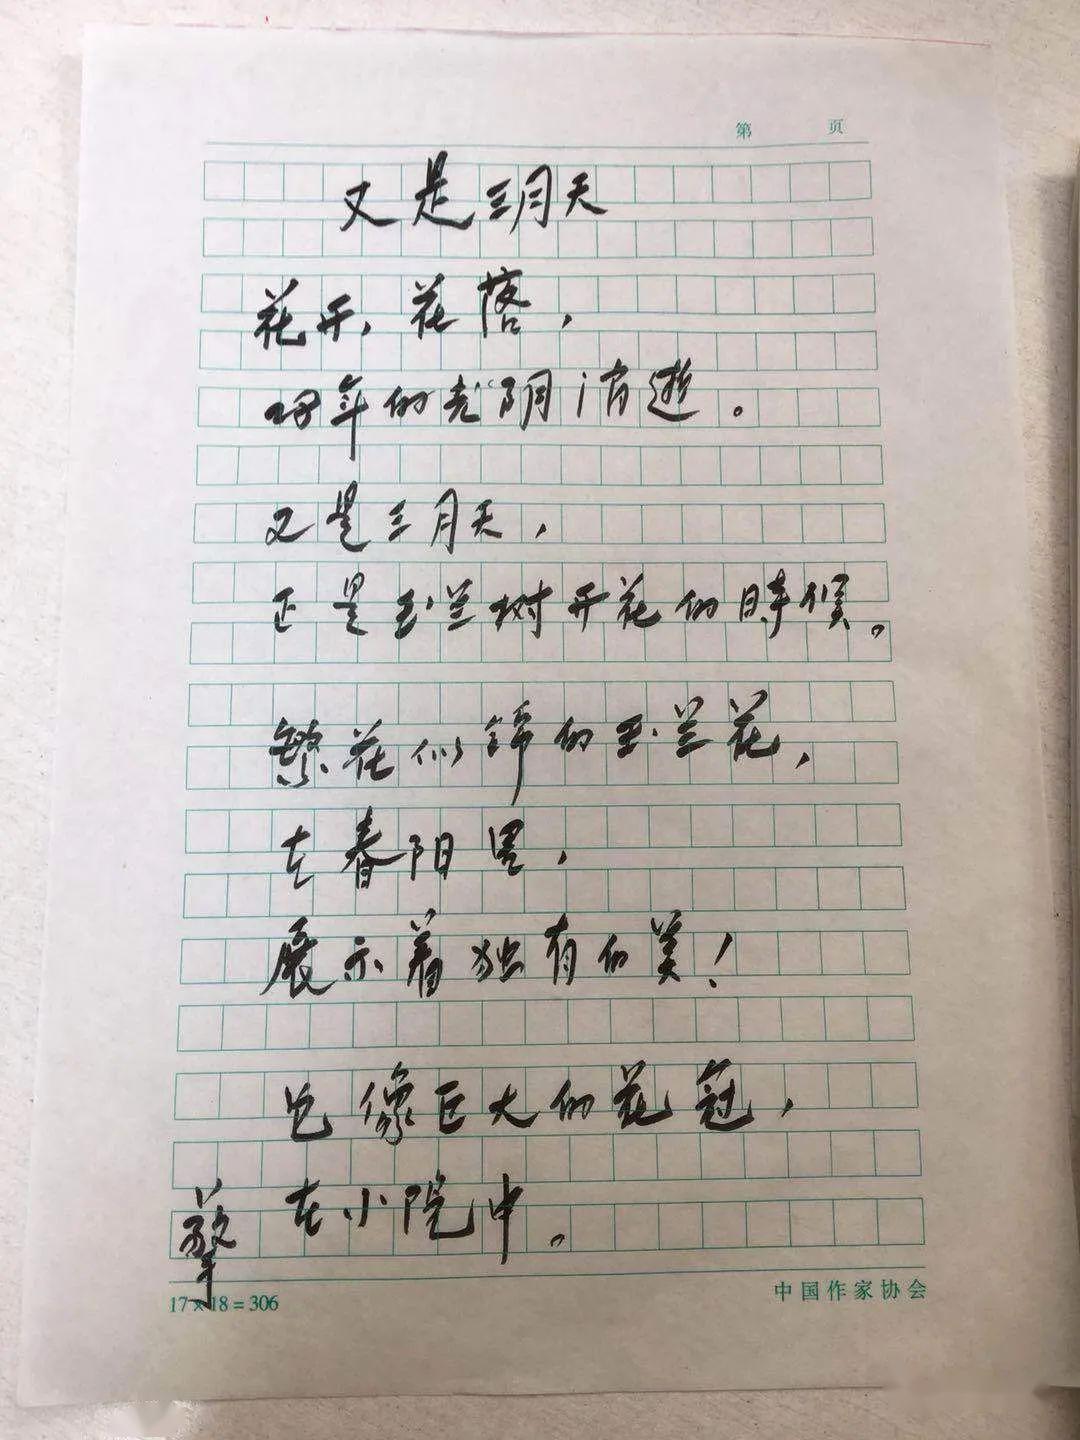 第 页
又是三月天
花开，花落，
年的光阴消逝。
又是三月天，
正是玉兰树开花的時候。
繁花似锦的玉兰花，
在春阳里，
展示着独有的美！
它像巨大的花冠，
擎在小院中。
17×18=306
中国作家协会